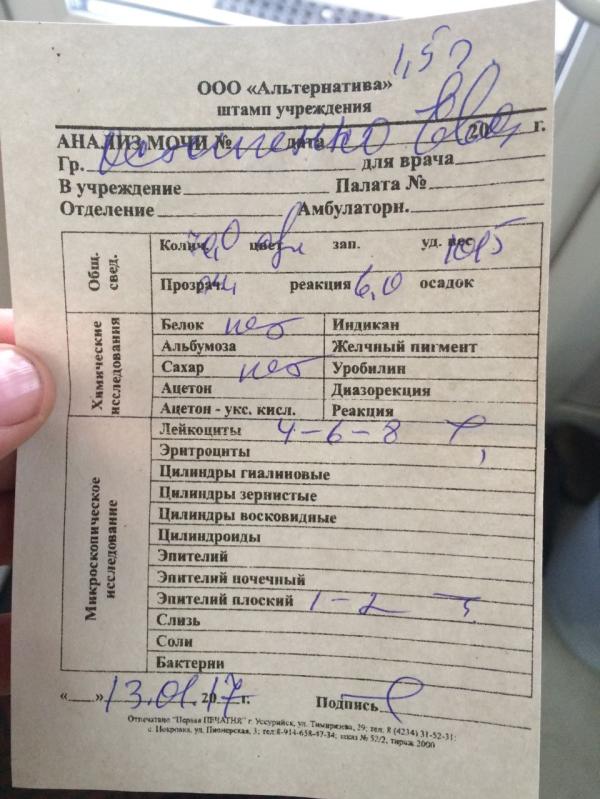 1,5 г.
ООО «Альтернатива»
штамп учреждения
АНАЛИЗ МОЧИ № дата 20 г.
Гр. для врача
В учреждение Палата №
Отделение Амбулаторн.
Общ. свед.
Колич. цвет зап. уд. вес 1015
Прозрач. реакция 6,0 осадок
Химические исследования
Белок нет Индикан
Альбумоза Желчный пигмент
Сахар нет Уробилин
Ацетон Диазорекция
Ацетон - укс. кисл. Реакция
Микроскопическое исследование
Лейкоциты 4-6-8
Эритроциты
Цилиндры гиалиновые
Цилиндры зернистые
Цилиндры восковидные
Цилиндроиды
Эпителий
Эпителий почечный
Эпителий плоский 1-2
Слизь
Соли
Бактерии
« » 13.01.17 20 г. Подпись
Отпечатано "Первая ПЕЧАТНЯ" г. Уссурийск, ул. Тимирязева, 29; тел: 8 (4234) 31-52-31;
с. Покровка, ул. Пионерская, 3; тел:8-914-658-47-34; заказ № 52/2, тираж 2000